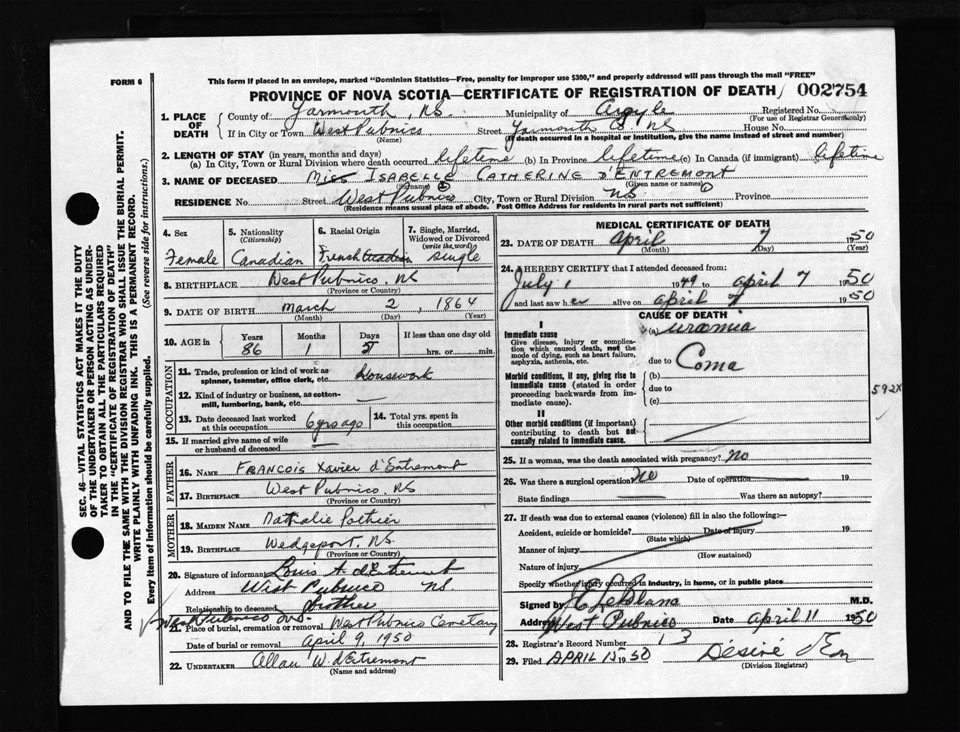 FORM 6
This form if placed in an envelope, marked "Dominion Statistics—Free, penalty for improper use $300," and properly addressed will pass through the mail "FREE"
PROVINCE OF NOVA SCOTIA—CERTIFICATE OF REGISTRATION OF DEATH 002754
1. PLACE OF DEATH
County of Yarmouth, N.S. Municipality of Argyle Registered No.
(For use of Registrar General only)
If in City or Town West Pubnico Street Yarmouth Co NS House No.
(Name) (If death occurred in a hospital or institution, give the name instead of street and number)
2. LENGTH OF STAY (in years, months and days)
(a) In City, Town or Rural Division where death occurred lifetime (b) In Province lifetime (c) In Canada (if immigrant) lifetime
3. NAME OF DECEASED Miss ISABELLE CATHERINE D'ENTREMONT
(Surname) (Given name or names)
RESIDENCE No. Street West Pubnico City, Town or Rural Division NS Province
(Residence means usual place of abode. Post Office Address for residents in rural parts not sufficient)
4. Sex Female
5. Nationality (Citizenship) Canadian
6. Racial Origin French Acadian
7. Single, Married, Widowed or Divorced (write the word) single
8. BIRTHPLACE West Pubnico, NS
(Province or Country)
9. DATE OF BIRTH March 2, 1864
(Month) (Day) (Year)
10. AGE in Years 86 Months 1 Days 5 If less than one day old hrs. or min.
OCCUPATION
11. Trade, profession or kind of work as spinner, teamster, office clerk, etc. Housework
12. Kind of industry or business, as cotton-mill, lumbering, bank, etc. —
13. Date deceased last worked at this occupation 6 yrs ago
14. Total yrs. spent in this occupation
15. If married give name of wife or husband of deceased
FATHER
16. NAME FRANCOIS Xavier d'Entremont
17. BIRTHPLACE West Pubnico, NS
(Province or Country)
MOTHER
18. MAIDEN NAME Nathalie Pothier
19. BIRTHPLACE Wedgeport, NS.
(Province or Country)
20. Signature of informant Louis A. d'Entremont
Address West Pubnico NS.
Relationship to deceased brother
West Pubnico NS.
21. Place of burial, cremation or removal West Pubnico Cemetary
Date of burial or removal April 9, 1950
22. UNDERTAKER Allan W. d'Entremont
(Name and address)
MEDICAL CERTIFICATE OF DEATH
23. DATE OF DEATH April 7 1950
(Month) (Day) (Year)
24. I HEREBY CERTIFY that I attended deceased from:
July 1 1949 to April 7 1950
and last saw her alive on April 7 1950
CAUSE OF DEATH
I
Immediate cause (a) uraemia
Give disease, injury or complication which caused death, not the mode of dying, such as heart failure, asphyxia, asthenia, etc.
due to Coma
Morbid conditions, if any, giving rise to immediate cause (stated in order proceeding backwards from immediate cause).
(b)
due to
(c)
592X
II
Other morbid conditions (if important) contributing to death but not causally related to immediate cause.
25. If a woman, was the death associated with pregnancy? No
26. Was there a surgical operation? No Date of operation 19
State findings Was there an autopsy?
27. If death was due to external causes (violence) fill in also the following:—
Accident, suicide or homicide? Date of injury 19
(State which)
Manner of injury
(How sustained)
Nature of injury
Specify whether injury occurred in industry, in home, or in public place
Signed by LeBlanc M.D.
Address West Pubnico Date April 11 1950
28. Registrar's Record Number 13
29. Filed APRIL 15 1950 Désiré
(Division Registrar)
SEC. 46- VITAL STATISTICS ACT MAKES IT THE DUTY
OF THE UNDERTAKER OR PERSON ACTING AS UNDER-
TAKER TO OBTAIN ALL THE PARTICULARS REQUIRED
IN THE "CERTIFICATE OF REGISTRATION OF DEATH"
AND TO FILE THE SAME WITH THE DIVISION REGISTRAR WHO SHALL ISSUE THE BURIAL PERMIT.
WRITE PLAINLY WITH UNFADING INK. THIS IS A PERMANENT RECORD.
Every item of Information should be carefully supplied. (See reverse side for instructions.)